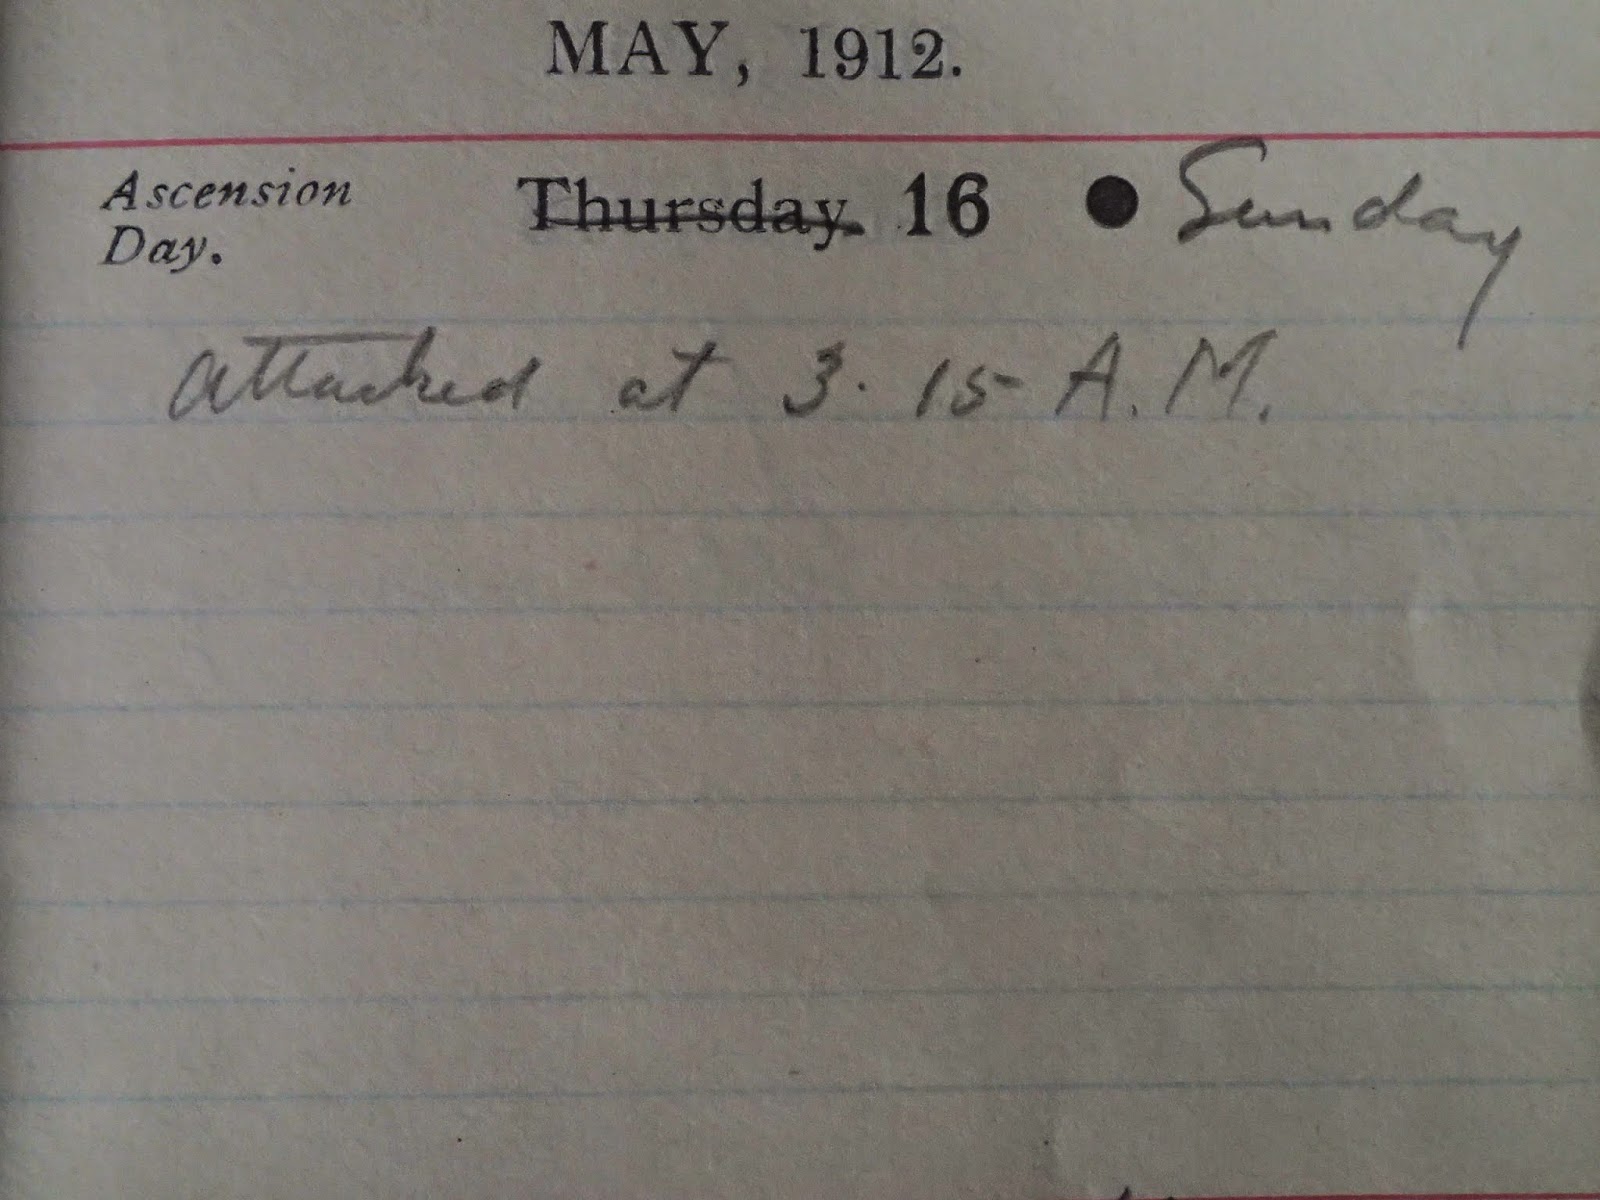 MAY, 1912.
Ascension Day.
Thursday. 16 ● Sunday
attacked at 3.15 A.M.